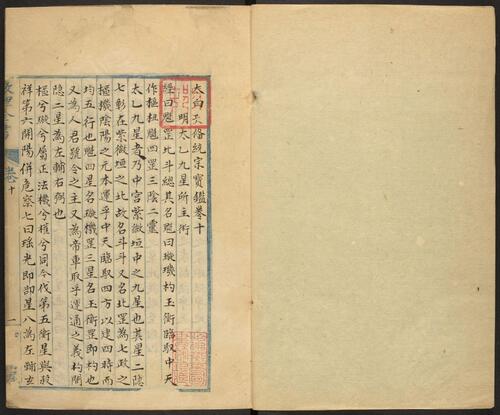 太白天格統宗寶鑑卷十
明太乙九星所主術
經曰魁罡北斗總其名魁曰璇璣杓玉衡臨馭中天
作樞紐魁四罡三陰二靈
太乙九星者乃中宮紫微垣中之九星也其星二隱
七彰在紫微垣之北故名斗斗又名北罡為七政之
樞機陰陽之元本運乎中天臨馭四方以建四時而
均五行也魁四星名璇機罡三星名玉衡罡即杓也
又為人君號令之主又為帝車取乎運通之義杓間
隱二星為左輔右弼也
樞兮璇兮屬正法機兮權兮同令伐第五衡星與殺
祥第六開陽併危察七曰瑤光即部星八為左輔玄
卷十
一